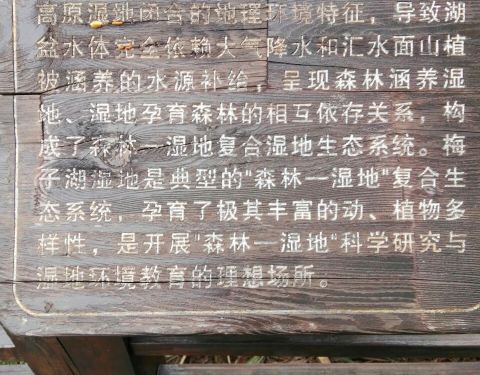 高原湿地闭合的地理环境特征，导致湖
盆水体完全依赖大气降水和汇水面山植
被涵养的水源补给，呈现森林涵养湿
地、湿地孕育森林的相互依存关系，构
成了森林一湿地复合湿地生态系统。梅
子湖湿地是典型的"森林一湿地"复合生
态系统，孕育了极其丰富的动、植物多
样性，是开展"森林一湿地"科学研究与
湿地环境教育的理想场所。